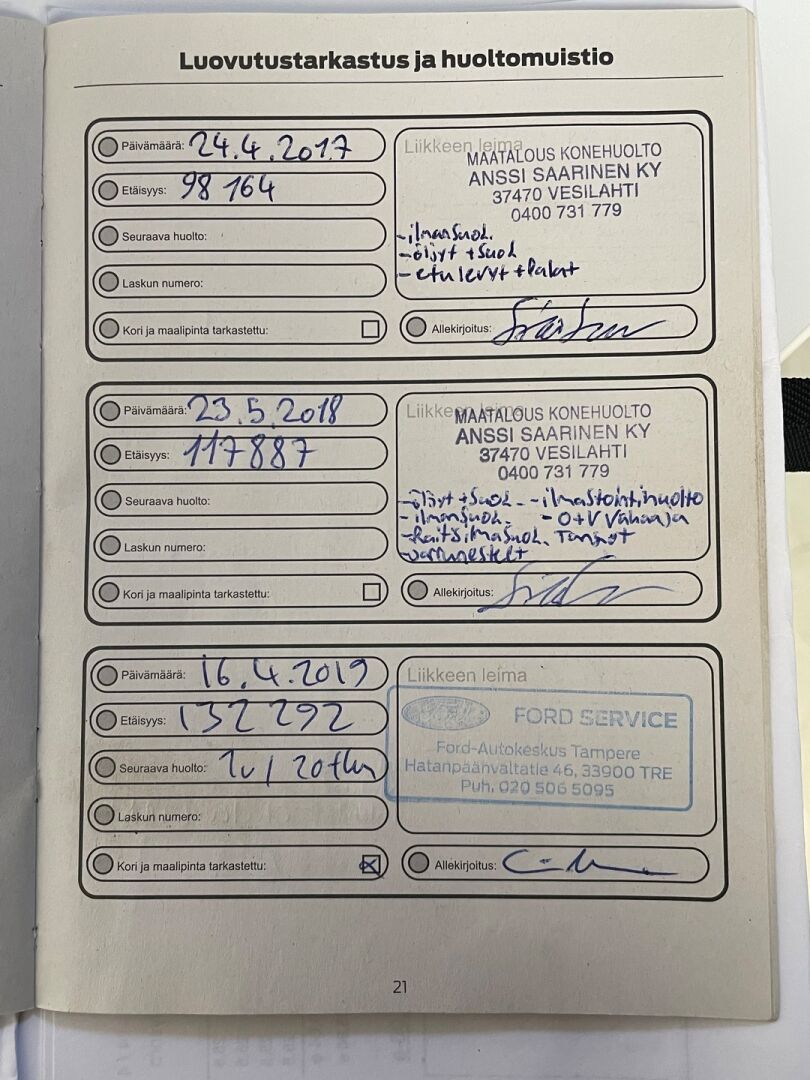 Luovutustarkastus ja huoltomuistio
Päivämäärä: 24.4.2017
Etäisyys: 98 164
Seuraava huolto:
Laskun numero:
Kori ja maalipinta tarkastettu:
Liikkeen leima
MAATALOUS KONEHUOLTO
ANSSI SAARINEN KY
37470 VESILAHTI
0400 731 779
-ilmansuod.
-öljyt +suod
-etulevyt +palat
Allekirjoitus:
Päivämäärä: 23.5.2018
Etäisyys: 117887
Seuraava huolto:
Laskun numero:
Kori ja maalipinta tarkastettu:
Liikkeen leima
MAATALOUS KONEHUOLTO
ANSSI SAARINEN KY
37470 VESILAHTI
0400 731 779
-öljyt +suod. -ilmastointihuolto
-ilmansuod. -O+V Vakaaja
-Raitisilmasuod. Tangot
-Jarrunesteet
Allekirjoitus:
Päivämäärä: 16.4.2019
Etäisyys: 132 292
Seuraava huolto: 1v / 20tkm
Laskun numero:
Kori ja maalipinta tarkastettu:
Liikkeen leima
FORD SERVICE
Ford-Autokeskus Tampere
Hatanpäänvaltatie 46, 33900 TRE
Puh. 020 506 5095
Allekirjoitus:
21